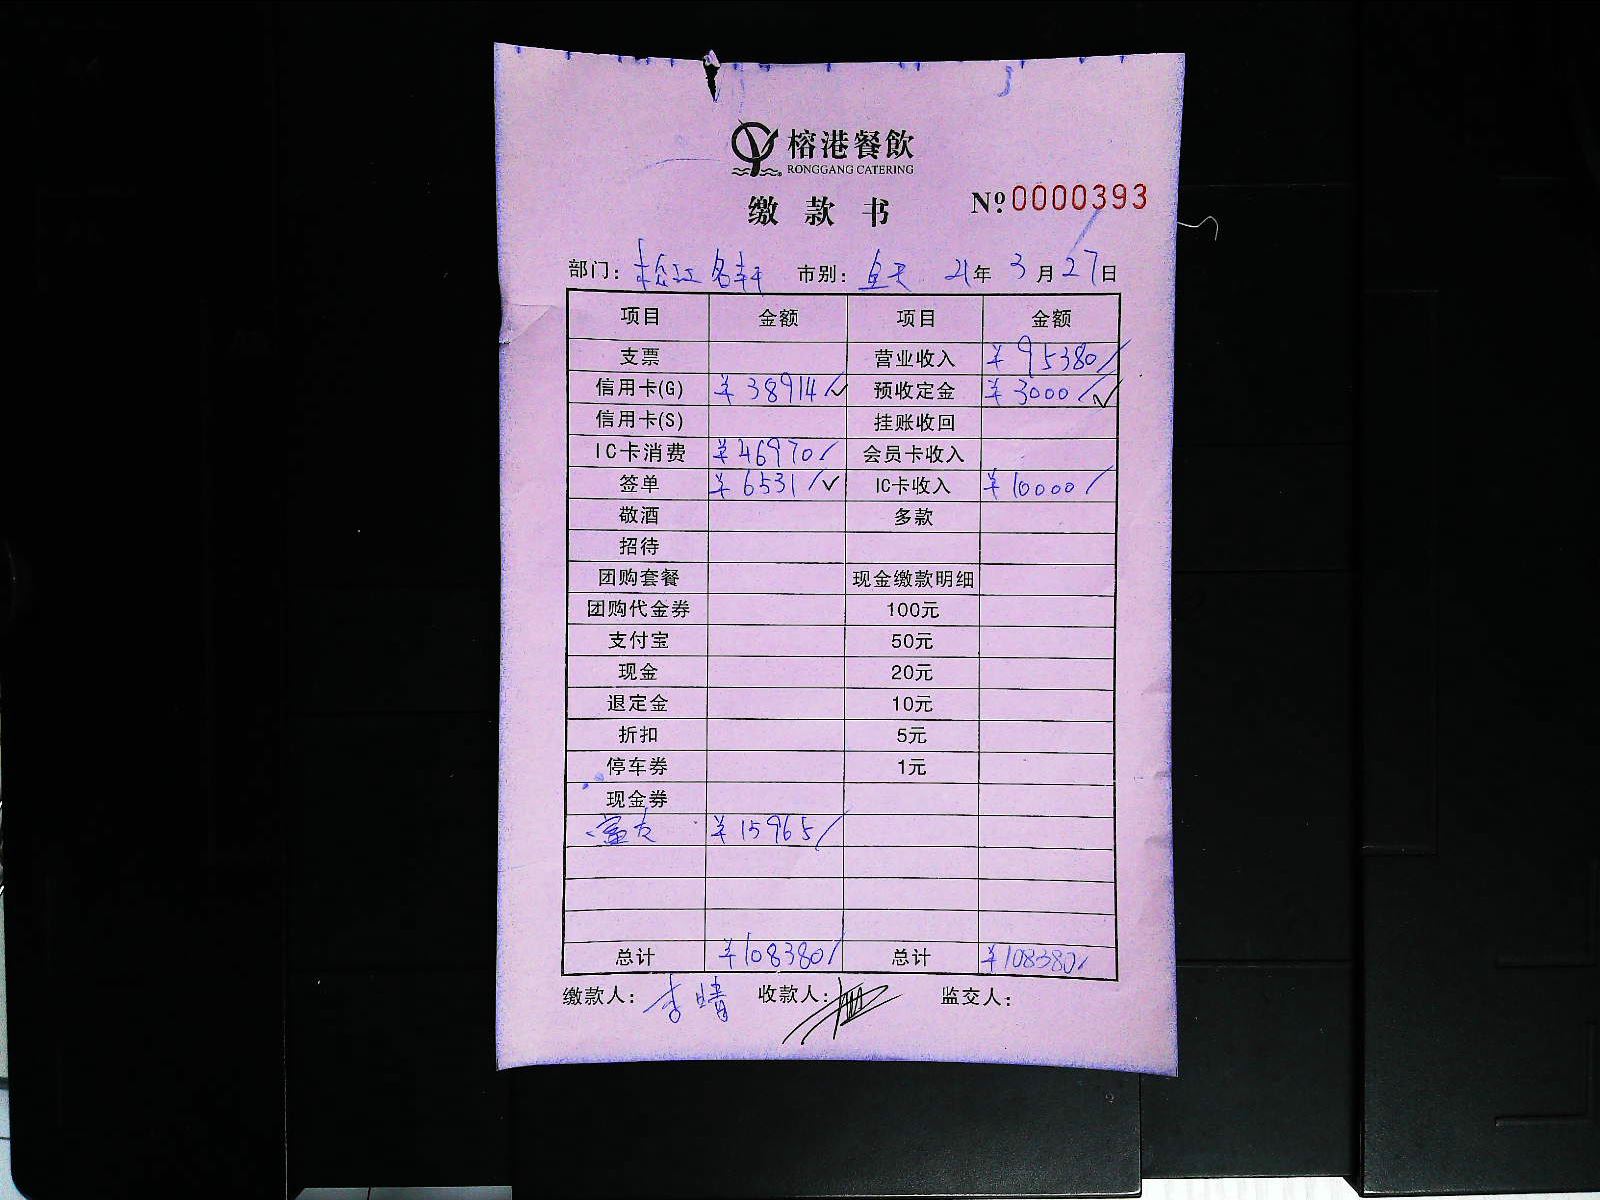 榕港餐飲
RONGGANG CATERING
缴款书 Nº 0000393
部门: 松江名轩 市别: 全天 21年3月27日
项目 金额 项目 金额
支票 营业收入 ¥95380/
信用卡(G) ¥38914/✓ 预收定金 ¥3000/✓
信用卡(S) 挂账收回
IC卡消费 ¥46970/ 会员卡收入
签单 ¥6531/✓ IC卡收入 ¥10000/
敬酒 多款
招待
团购套餐 现金缴款明细
团购代金券 100元
支付宝 50元
现金 20元
退定金 10元
折扣 5元
停车券 1元
现金券
富友 ¥15965/
总计 ¥108380/ 总计 ¥108380/
缴款人: 李晴 收款人: 监交人: